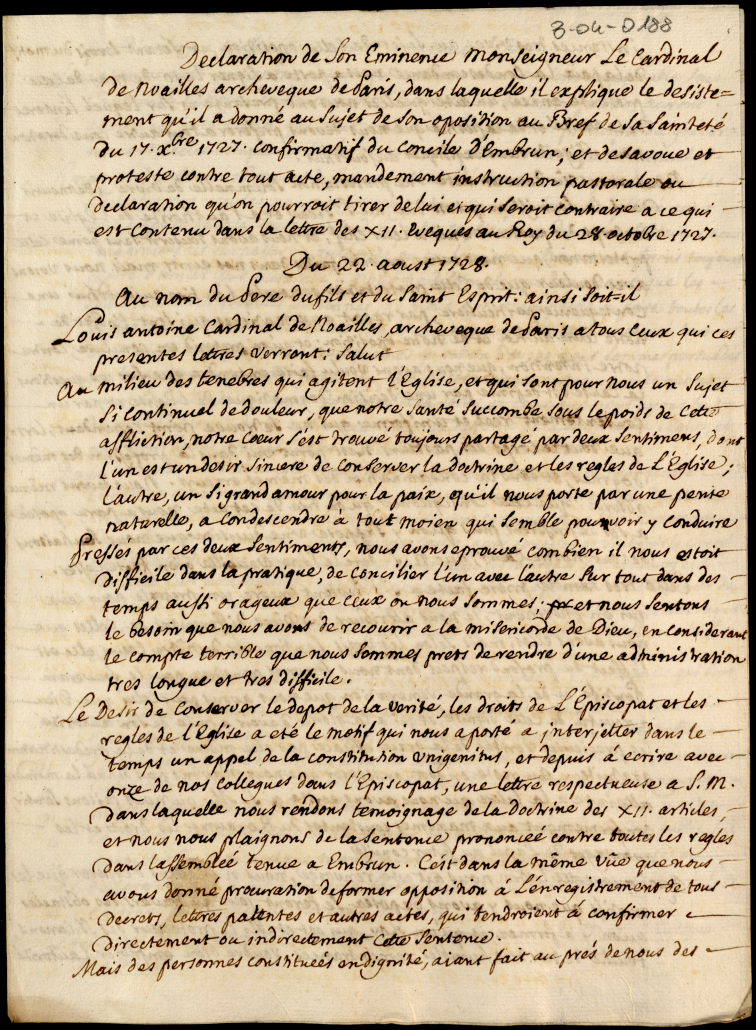 3-04-0188
Declaration de Son Eminence Monseigneur Le Cardinal
de Noailles archeveque de Paris, dans laquelle il explique le desiste=
ment qu'il a donné au Sujet de Son oposition au Bref de Sa Sainteté
du 17. xbre 1727. confirmatif du Concile d'Embrun; et desavoue et
proteste contre tout acte, mandement instruction pastorale ou
declaration qu'on pourroit tirer de lui et qui Seroit contraire a ce qui
est contenu dans la lettre des XII. Eveques au Roy du 28. octobre 1727.
Du 22. aoust 1728.
Au nom du Pere du fils et du Saint Esprit: ainsi Soit=il
Louis antoine Cardinal de Noailles, archeveque de Paris a tous Ceux qui ces
presentes lettres verront: Salut
Au milieu des tenebres qui agitent l'Eglise, et qui Sont pour nous un Sujet
Si continuel de douleur, que notre Santé Succombe Sous le poids de Cette
affliction, notre Cœur S'est trouvé toujours partagé par deux Sentimens, dont
l'un est un desir Sincere de Conserver la doctrine et les regles de L'Eglise;
l'autre, un Si grand amour pour la paix, qu'il nous porte par une pente
naturelle, a condescendre à tout moien qui Semble pouvoir y conduire
Pressés par ces deux Sentiments, nous avons eprouvé combien il nous etoit
difficile dans la pratique, de concilier l'un avec l'autre Sur tout dans des
temps aussi orageux que ceux ou nous Sommes; et nous Sentons
le besoin que nous avons de recourir a la misericorde de Dieu, en considerant
le compte terrible que nous Sommes prets de rendre d'une administration
tres longue et tres difficile.
Le Desir de Conserver le depot de la verité, les droits de L'Episcopat et les
regles de l'Eglise a eté le motif qui nous a porté a interjetter dans le
temps un appel de la constitution Unigenitus, et depuis á ecrire avec
onze de nos Collegues dans l'Episcopat, une lettre respectueuse a S. M.
dans laquelle nous rendons temoignage de la Doctrine des XII. articles,
et nous nous plaignons de la Sentence prononceé contre toutes les regles
dans l'assembleé tenue a Embrun. C'est dans la même vüe que nous
avons donné procuration de former opposition á L'enregistrement de tous
decrets, lettres patentes et autres actes, qui tendroient á confirmer
directement ou indirectement Cette Sentence.
Mais des personnes constitueés en dignité, aiant fait au prés de nous des